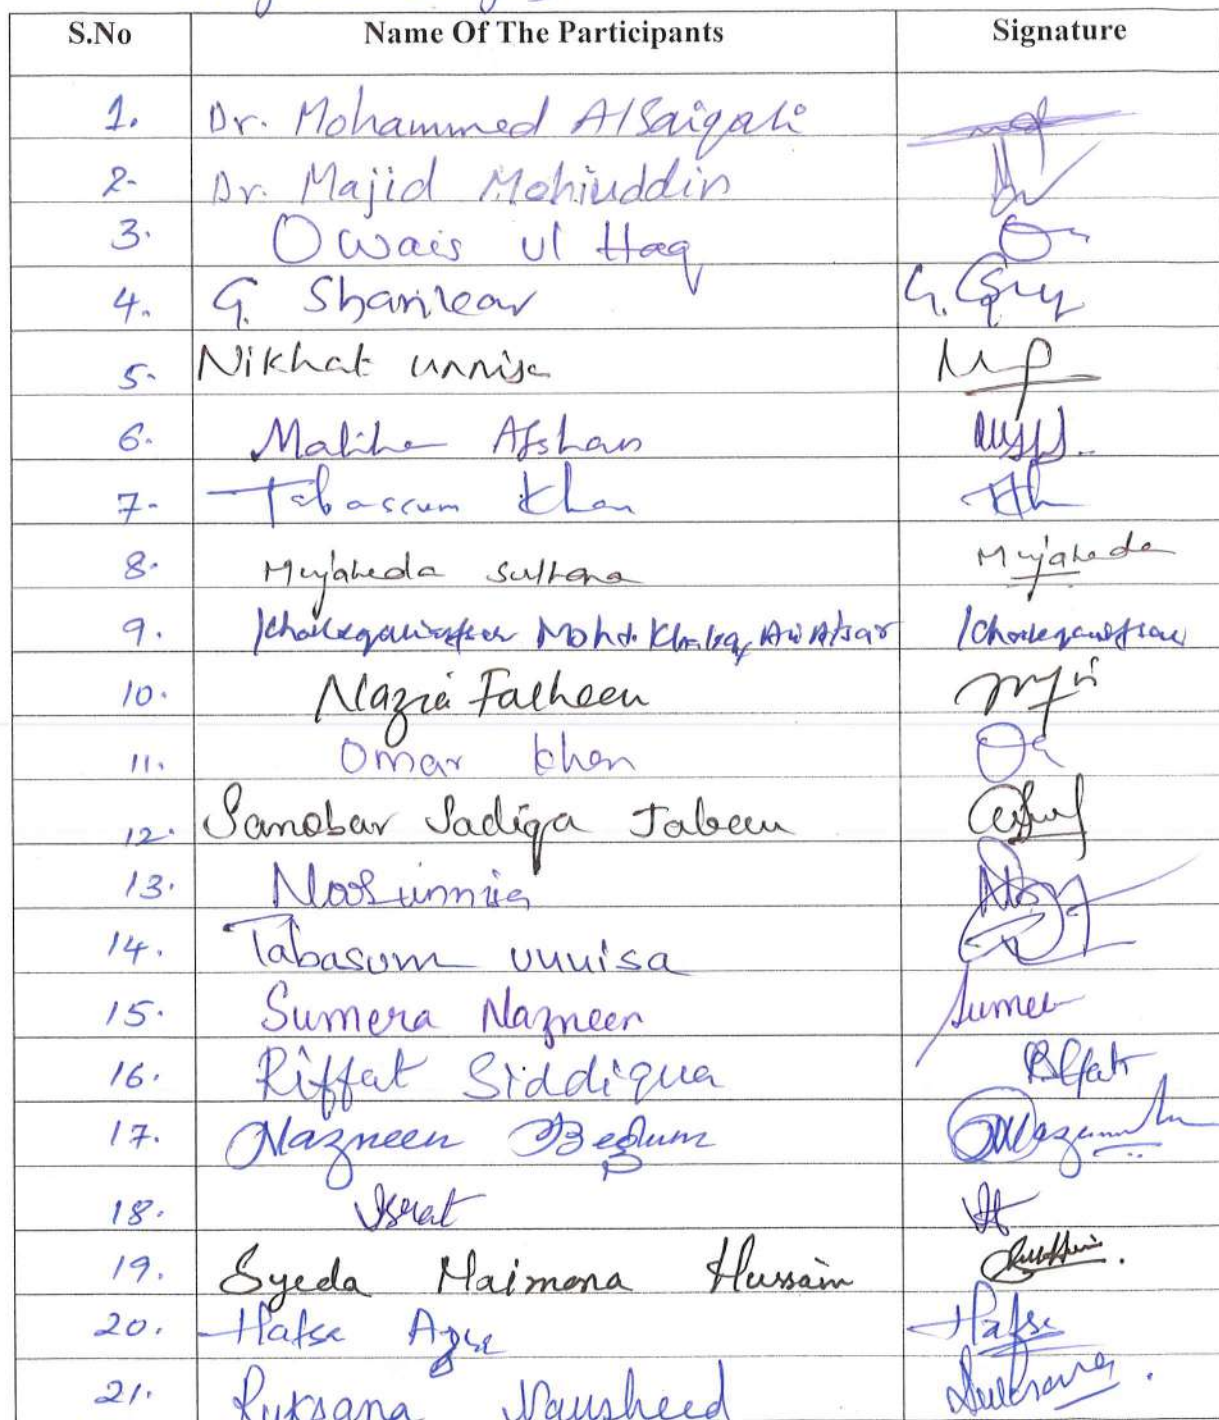 S.No Name Of The Participants Signature
1. Dr. Mohammed AlSaigali
2- Dr. Majid Mohiuddin
3. Owais ul Haq
4. G. Shankar G.
5- Nikhat unnisa
6- Maliha Afshan
7- Tabassum Khan
8- Mujaheda Sultana Mujaheda
9. Mohd.
10. Nazia Fatheen
11. Omar Khan
12. Sanobar Sadiqa Jabeen
13. Noorunnisa
14. Tabasum unnisa
15. Sumera Nazneen Sumera
16. Riffat Siddiqua Riffat
17. Nazneen Begum
18. Israt
19. Syeda Maimona Hussain
20. Hafsa Hafsa
21. Ruksana Nausheed Ruksana